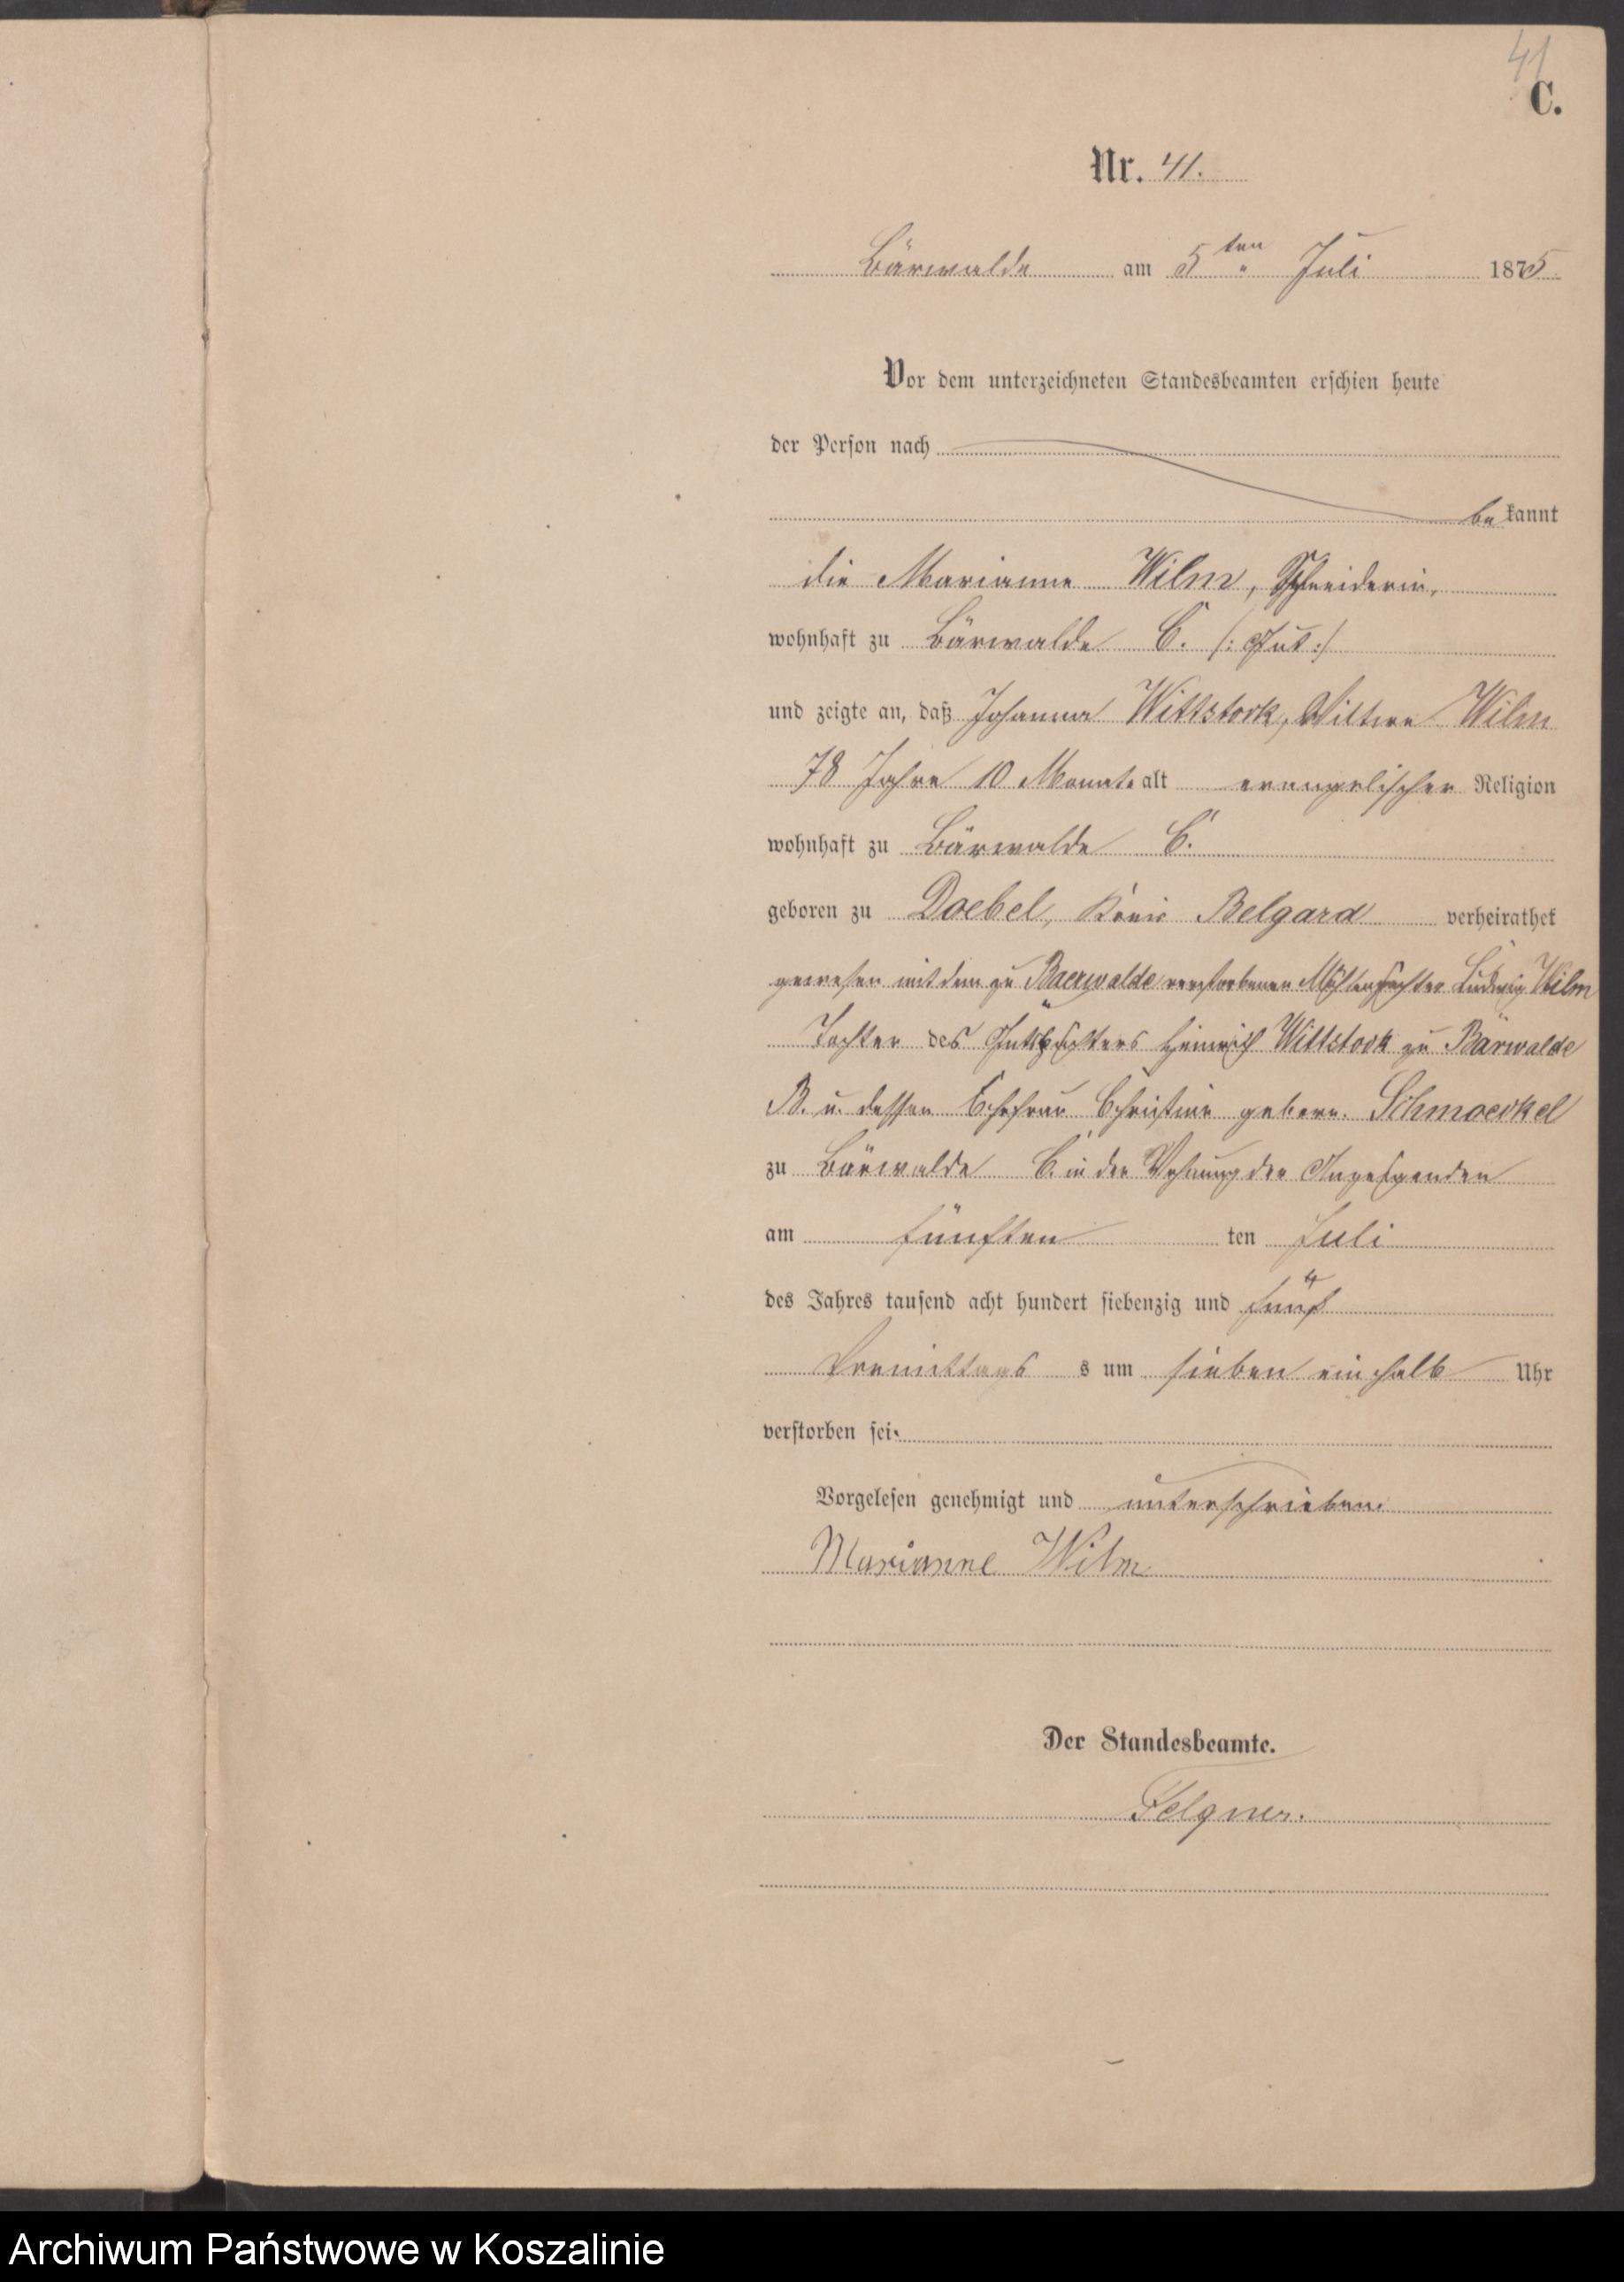 41
C.
Nr. 41.
Bärwalde am 5ten Juli 1875.
Vor dem unterzeichneten Standesbeamten erschien heute
der Person nach
bekannt
die Marianne Wilm, Schneiderin,
wohnhaft zu Bärwalde C. (: Gut :)
und zeigte an, daß Johanna Wittstock, Wittwe Wilm
78 Jahre 10 Monate alt evangelischer Religion
wohnhaft zu Bärwalde C.
geboren zu Doebel, Kreis Belgard verheirathet
gewesen mit dem zu Baerwalde verstorbenen Mühlenpächter Ludwig Wilm
Tochter des Gutspächters Heinrich Wittstock zu Bärwalde
B. u. dessen Ehefrau Christine geborn. Schmoeckel
zu Bärwalde C. in der Wohnung der Anzeigenden
am fünften ten Juli
des Jahres tausend acht hundert siebenzig und fünf
Vormittags s um sieben ein halb Uhr
verstorben sei.
Vorgelesen genehmigt und unterschrieben.
Marianne Wilm
Der Standesbeamte.
Felgner.
Archiwum Państwowe w Koszalinie